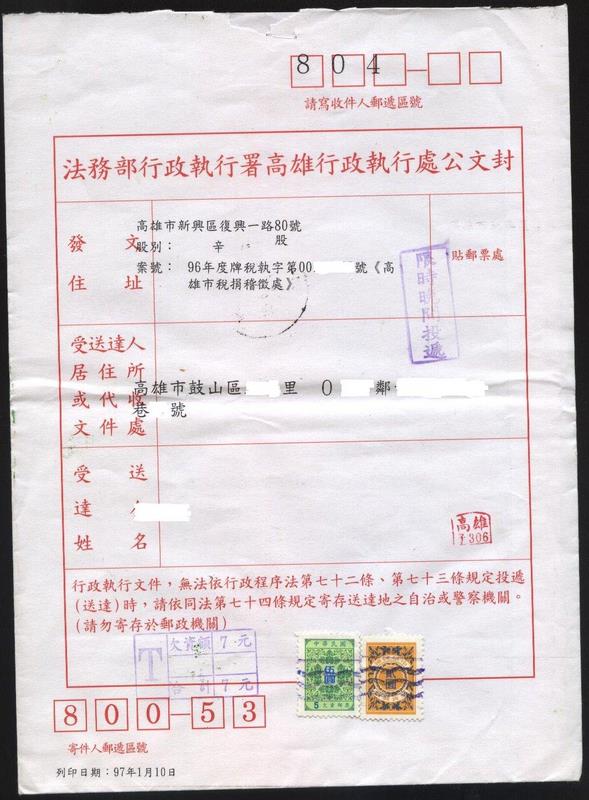 804
請寫收件人郵遞區號
法務部行政執行署高雄行政執行處公文封
發文住址
高雄市新興區復興一路80號
股別： 辛 股
案號： 96年度牌稅執字第00 號《高
雄市稅捐稽徵處》
貼郵票處
限時晚間投遞
受送達人
居住所
或代收
文件處
高雄市鼓山區 里 0 鄰
巷 號
受送
達人
姓名
高雄
306
行政執行文件，無法依行政程序法第七十二條、第七十三條規定投遞
(送達)時，請依同法第七十四條規定寄存送達地之自治或警察機關。
(請勿寄存於郵政機關)
T
欠資額 7 元
合計 7 元
中華民國
伍圓
5 欠資郵票
800-53
寄件人郵遞區號
列印日期：97年1月10日